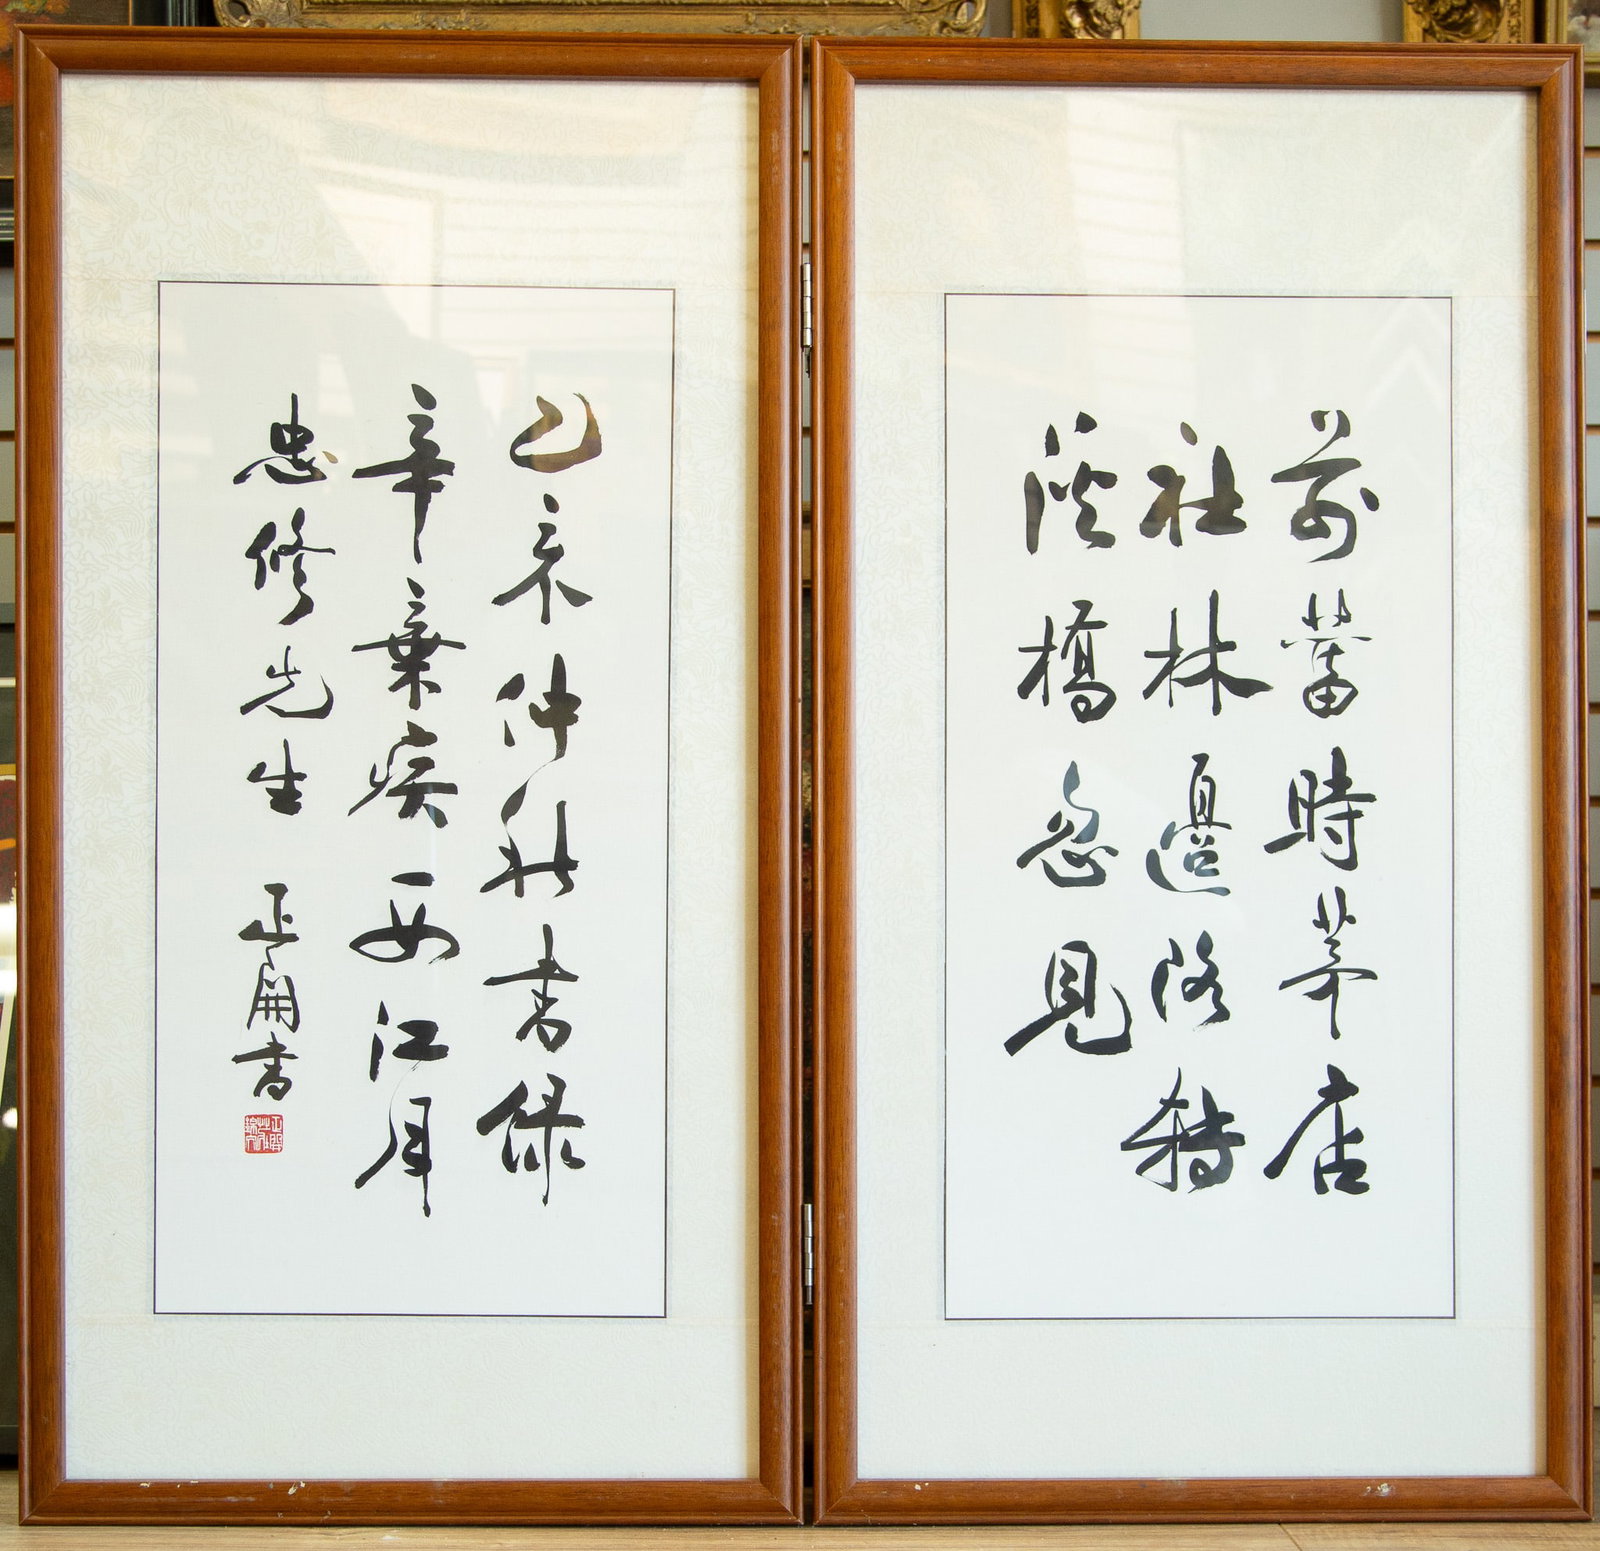 前舊時茅店
社林邊路轉
溪橋忽見
乙亥仲秋書錄
辛棄疾西江月
忠修先生 正開書